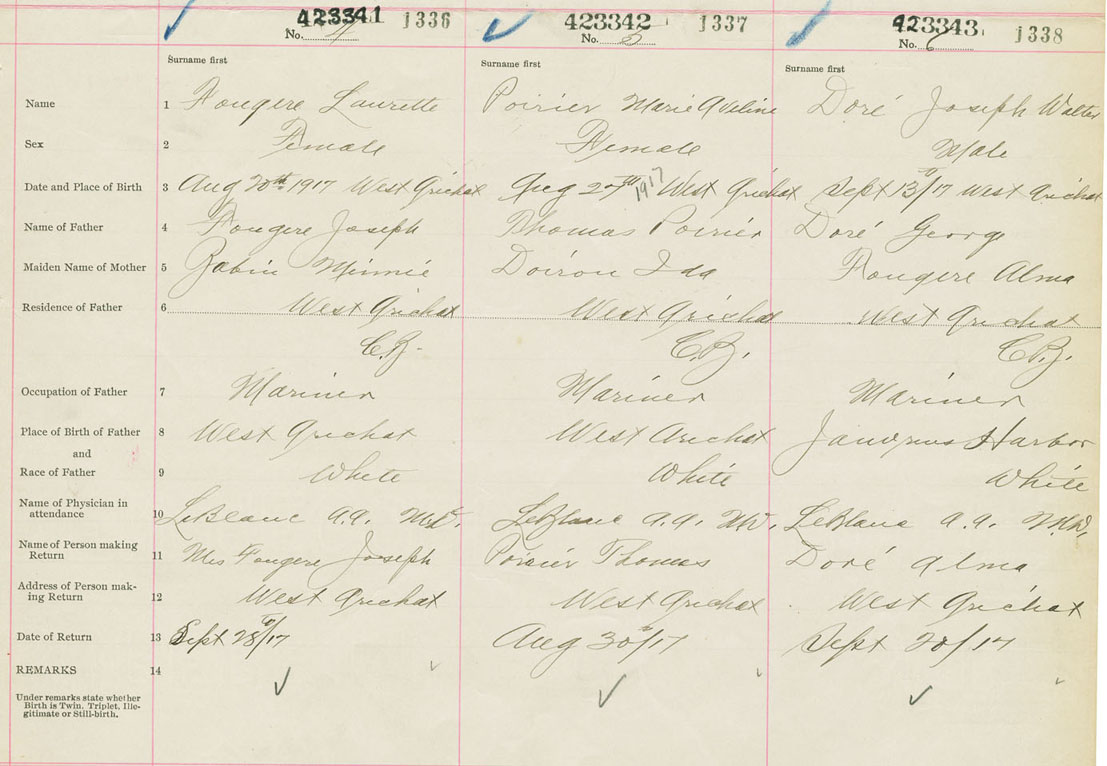 423341 1336 423342 1337 423343 1338
No. 4 No. 5 No. 6
Surname first Surname first Surname first
Name 1 Fougere Laurette Poirier Marie Aveline Doré Joseph Walter
Sex 2 Female Female Male
Date and Place of Birth 3 Aug 20th 1917 West Arichat Aug 20th 1917 West Arichat Sept 13th/17 West Arichat
Name of Father 4 Fougere Joseph Thomas Poirier Doré George
Maiden Name of Mother 5 Minnie Doiron Ida Fougere Alma
Residence of Father 6 West Arichat West Arichat West Arichat
C.B. C.B. C.B.
Occupation of Father 7 Mariner Mariner Mariner
Place of Birth of Father 8 West Arichat West Arichat Harbor
and
Race of Father 9 White White White
Name of Physician in
attendance 10 LeBlanc A.A. M.D. LeBlanc A.A. M.D. LeBlanc A.A. M.D.
Name of Person making
Return 11 Mrs Fougere Joseph Poirier Thomas Doré Alma
Address of Person mak-
ing Return 12 West Arichat West Arichat West Arichat
Date of Return 13 Sept 28th/17 Aug 30th/17 Sept 20/17
REMARKS 14
Under remarks state whether
Birth is Twin, Triplet, Ille-
gitimate or Still-birth.